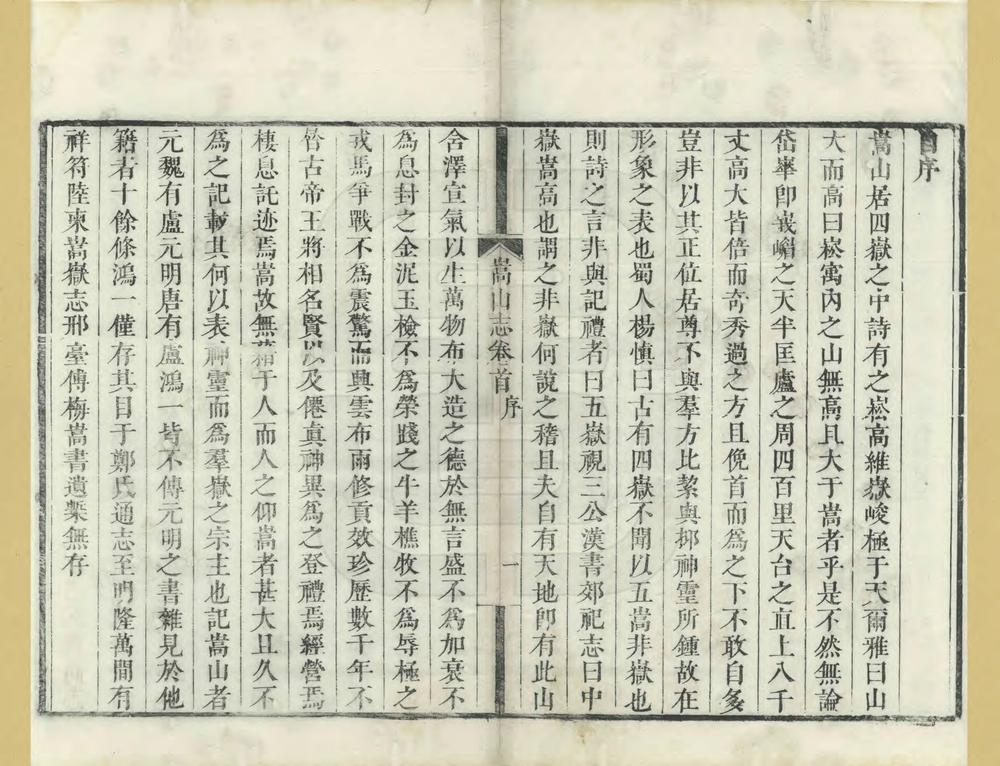 自序
嵩山居四嶽之中詩有之崧高維嶽峻極于天爾雅曰山
大而高曰崧寓內之山無高且大于嵩者乎是不然無論
岱華卽峩嵋之天半匡廬之周四百里天台之直上八千
丈高大皆倍而奇秀過之方且俛首而為之下不敢自多
豈非以其正位居尊不與羣方比絜與抑神靈所鍾故在
形象之表也蜀人楊慎曰古有四嶽不聞以五嵩非嶽也
則詩之言非與記禮者曰五嶽視三公漢書郊祀志曰中
嶽嵩高也謂之非嶽何說之稽且夫自有天地卽有此山
嵩山志卷首 序 一
含澤宣氣以生萬物布大造之德於無言盛不為加衰不
為息封之金泥玉檢不為榮踐之牛羊樵牧不為辱極之
戎馬爭戰不為震驚而興雲布雨修貢效珍歷數千年不
咎古帝王將相名賢以及僊真神異為之登禮焉經營焉
棲息託迹焉嵩故無藉于人而人之仰嵩者甚大且久不
為之記載其何以表神靈而為羣嶽之宗主也記嵩山者
元魏有盧元明唐有盧鴻一皆不傳元明之書雜見於他
籍者十餘條鴻一僅存其目于鄭氏通志至明隆萬間有
祥符陸柬嵩嶽志邢臺傅梅嵩書遺槧無存